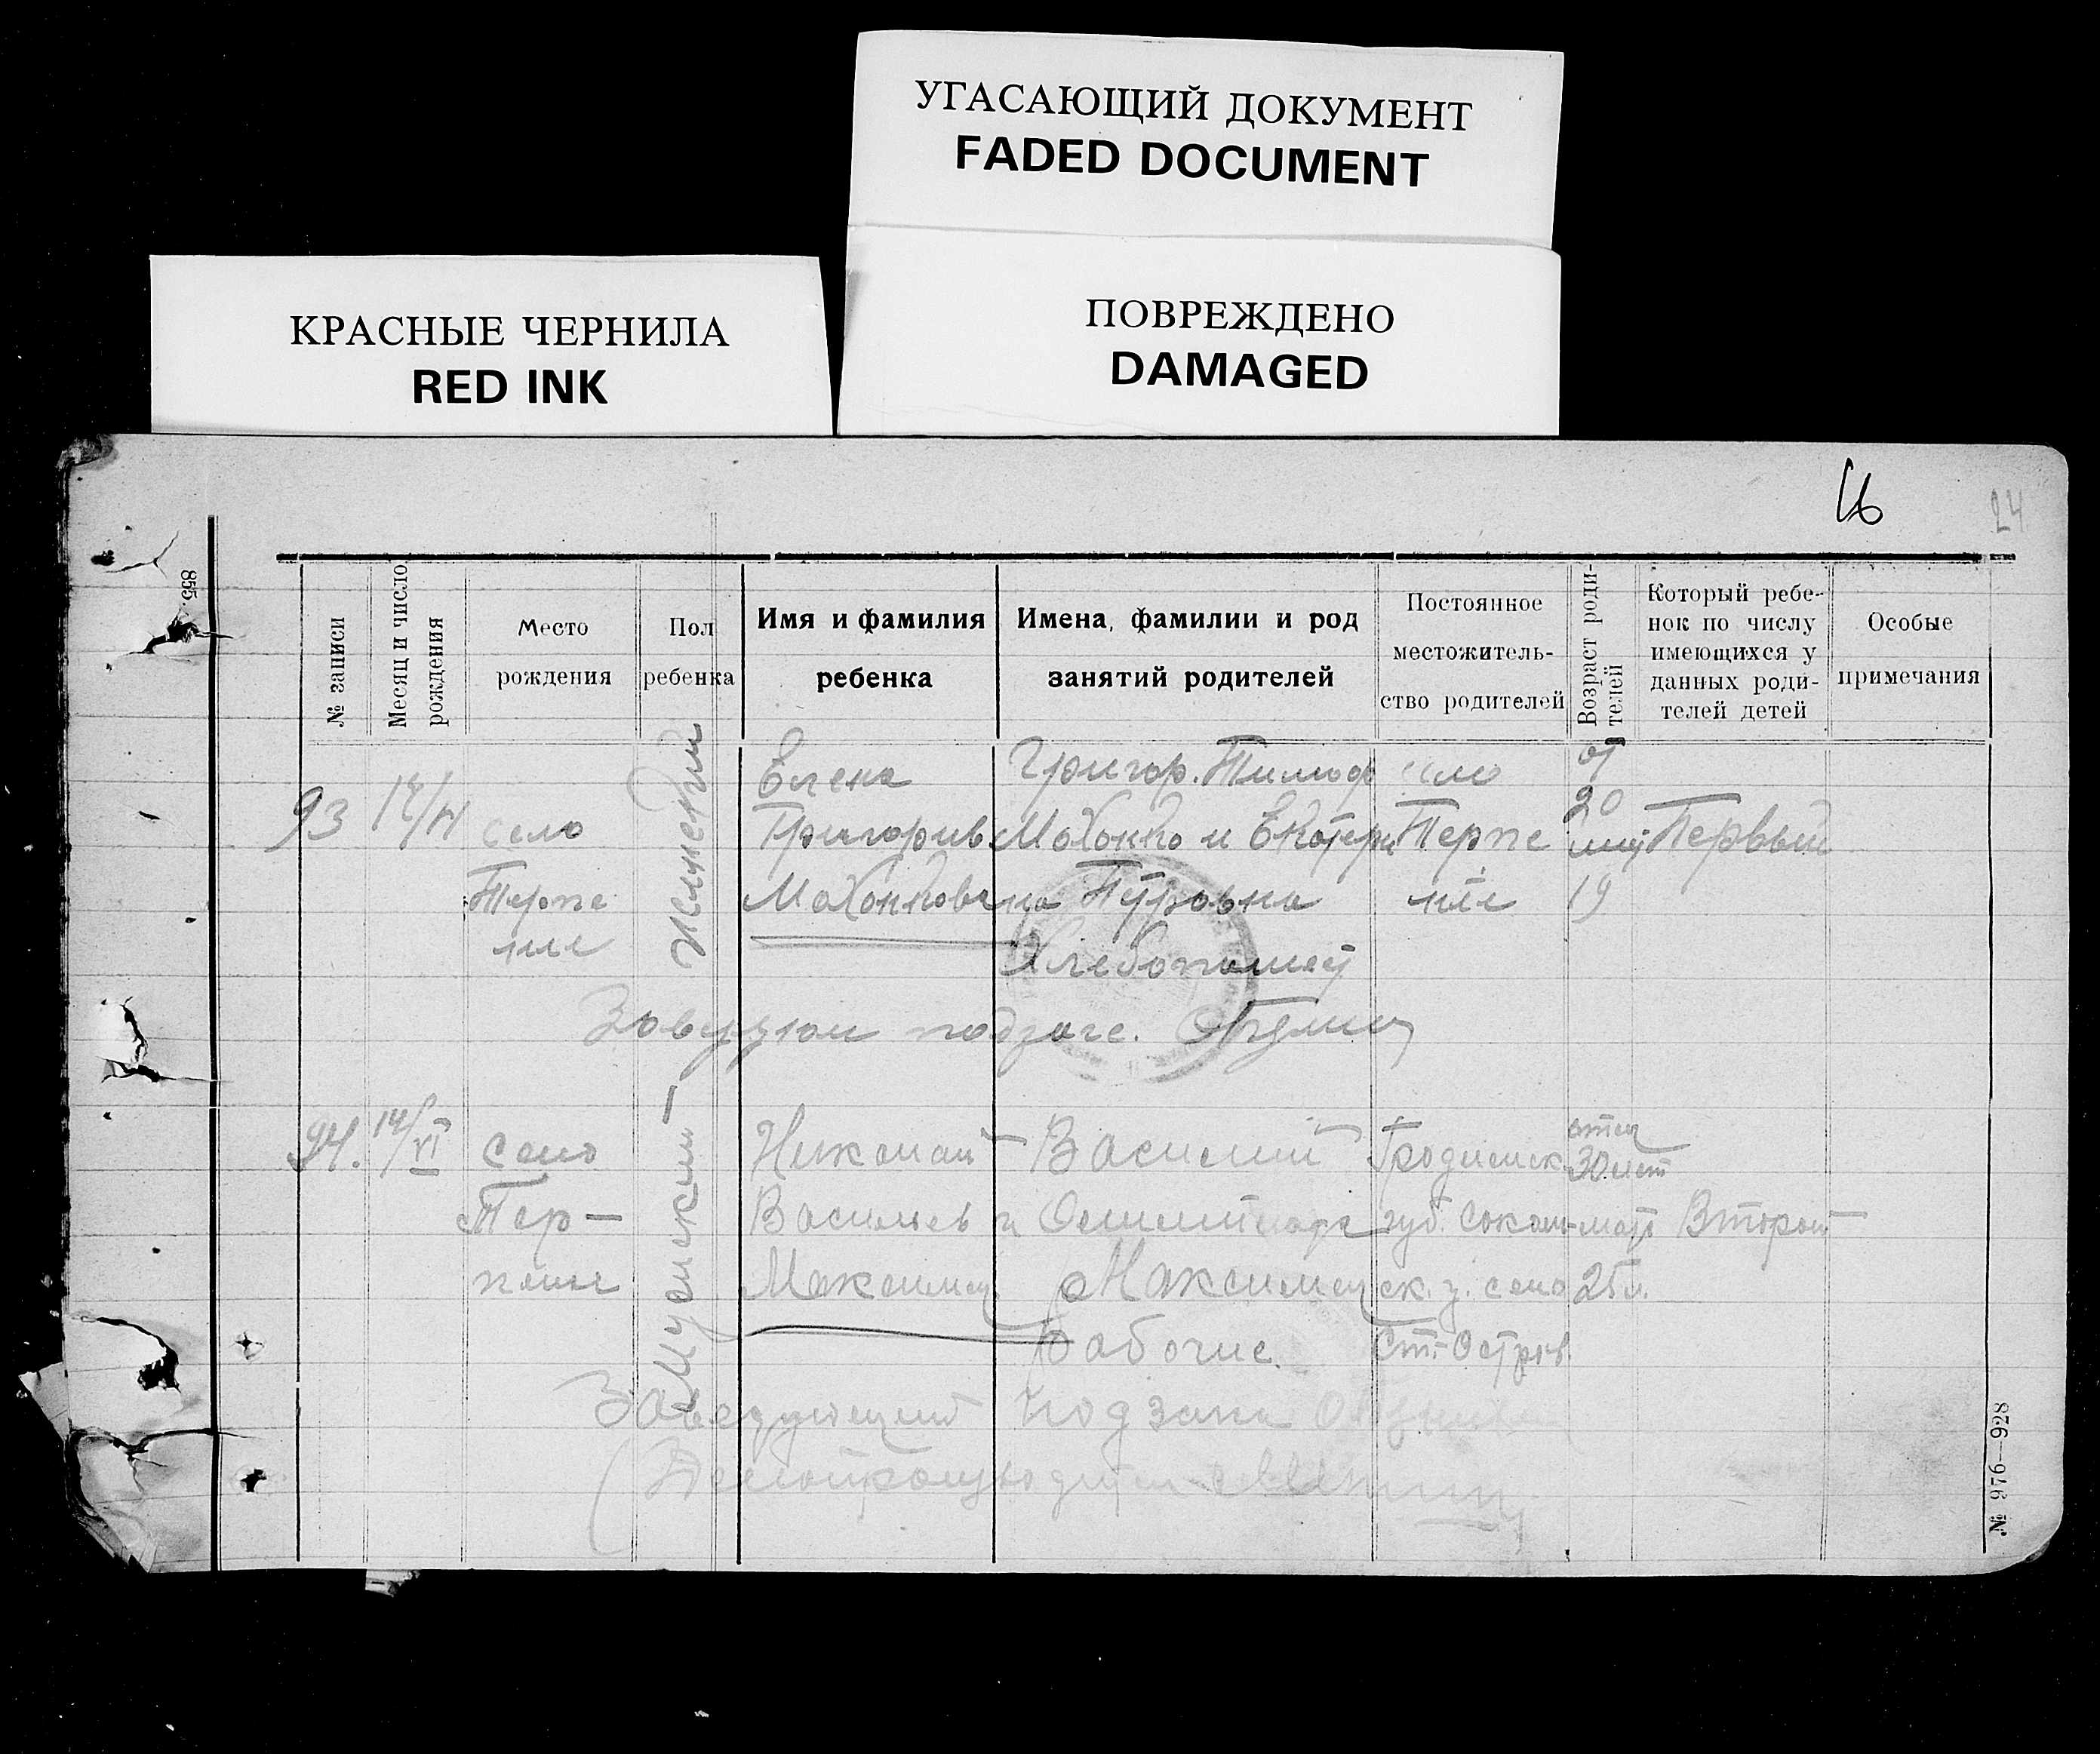 УГАСАЮЩИЙ ДОКУМЕНТ
FADED DOCUMENT
КРАСНЫЕ ЧЕРНИЛА
RED INK
ПОВРЕЖДЕНО
DAMAGED
16
24
855.
№ записи
Месяц и число рождения
Место рождения
Пол ребенка
Имя и фамилия ребенка
Имена, фамилии и род занятий родителей
Постоянное местожитель-
ство родителей
Возраст роди-
телей
Который ребе-
нок по числу
имеющихся у
данных роди-
телей детей
Особые примечания
93
село
Терпе
ние
Женский
Елена
Григорьев
Григор. Тимоф
Махонко и Екатери
на Петровна
Хлебопашец
село
Терпе
ние
от
20
19
Первый
94.
14/VI
село
Тер-
пение
Мужской
Николай
Васильев
Максимец
Василий
и
Максимец
Рабочие.
Гродненск.
губ. Сокол-
ск. у. село
Ст.-Остров.
отец
30 лет
мать
25 л.
Второй
Заведующий подзаг
№ 976—928